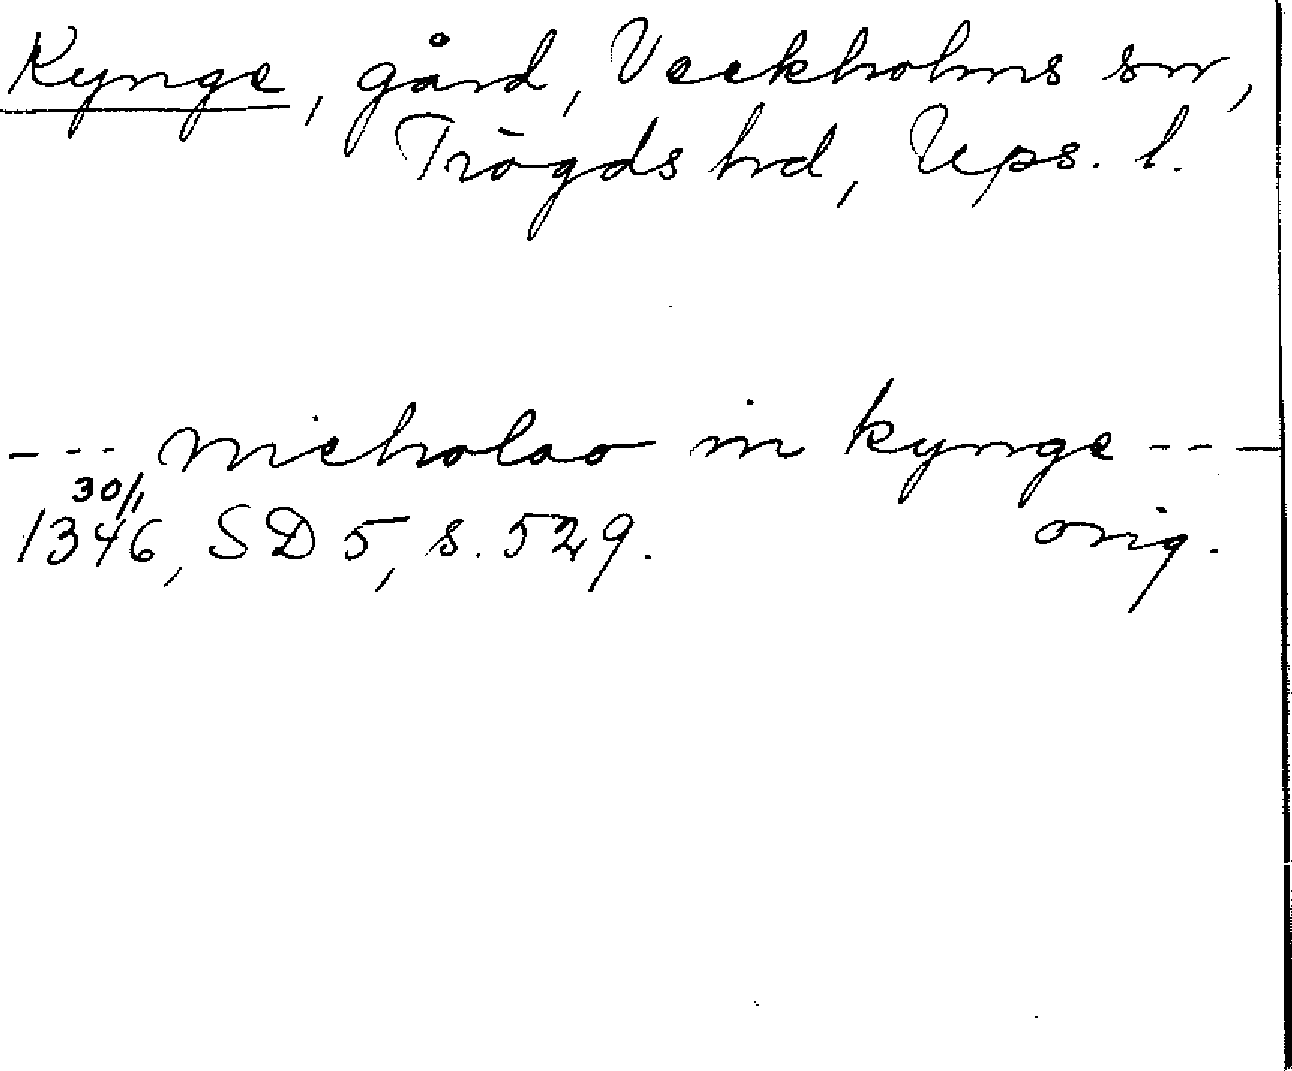 Kynge, gård, Veckholms sn,
Trögds hd, Ups. l.
--- nicholao in kynge ---
30/1
1346, SD 5, s. 529. orig.